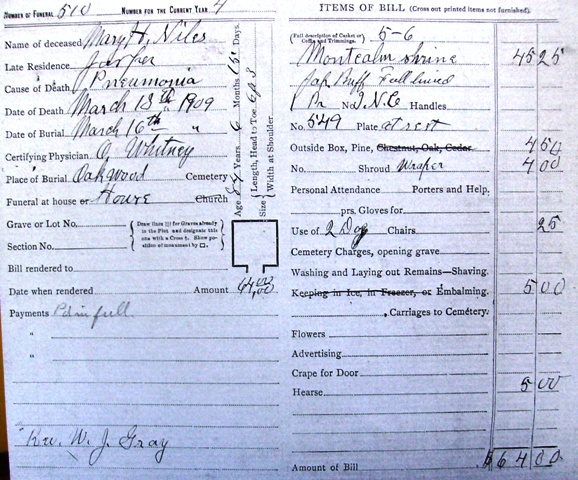 Number of Funeral 510 Number for the Current Year 4
Name of deceased Mary H. Niles
Late Residence Jasper
Cause of Death Pneumonia
Date of Death March 13th 1909
Date of Burial March 16th "
Certifying Physician O, Whitney
Place of Burial Oakwood Cemetery
Funeral at house or House Church
Age 84 Years. 6 Months 15 Days.
Size Length, Head to Toe
Width at Shoulder
Grave or Lot No.
Section No.
Draw lines for Graves already in the Plot and designate this one with a Cross †. Show position of monument by □.
Bill rendered to
Date when rendered Amount 64,00
Payments Pd in full
"
"
Rev. W. J. Gray
ITEMS OF BILL (Cross out printed items not furnished).
(Full description of Casket or Coffin and Trimmings. 5-6
Montcalm shrine 45 25
Buff Full lined
1 Pr No I.N.C Handles.
No. 549 Plate at rest
Outside Box, Pine, Chestnut, Oak, Cedar 4 50
No. Shroud Wraper 4 00
Personal Attendance Porters and Help,
prs. Gloves for
Use of 2 Doz Chairs 25
Cemetery Charges, opening grave
Washing and Laying out Remains—Shaving.
Keeping in Ice, in Freezer, or Embalming. 5 00
Carriages to Cemetery.
Flowers
Advertising
Crape for Door
Hearse 5 00
Amount of Bill $64 00